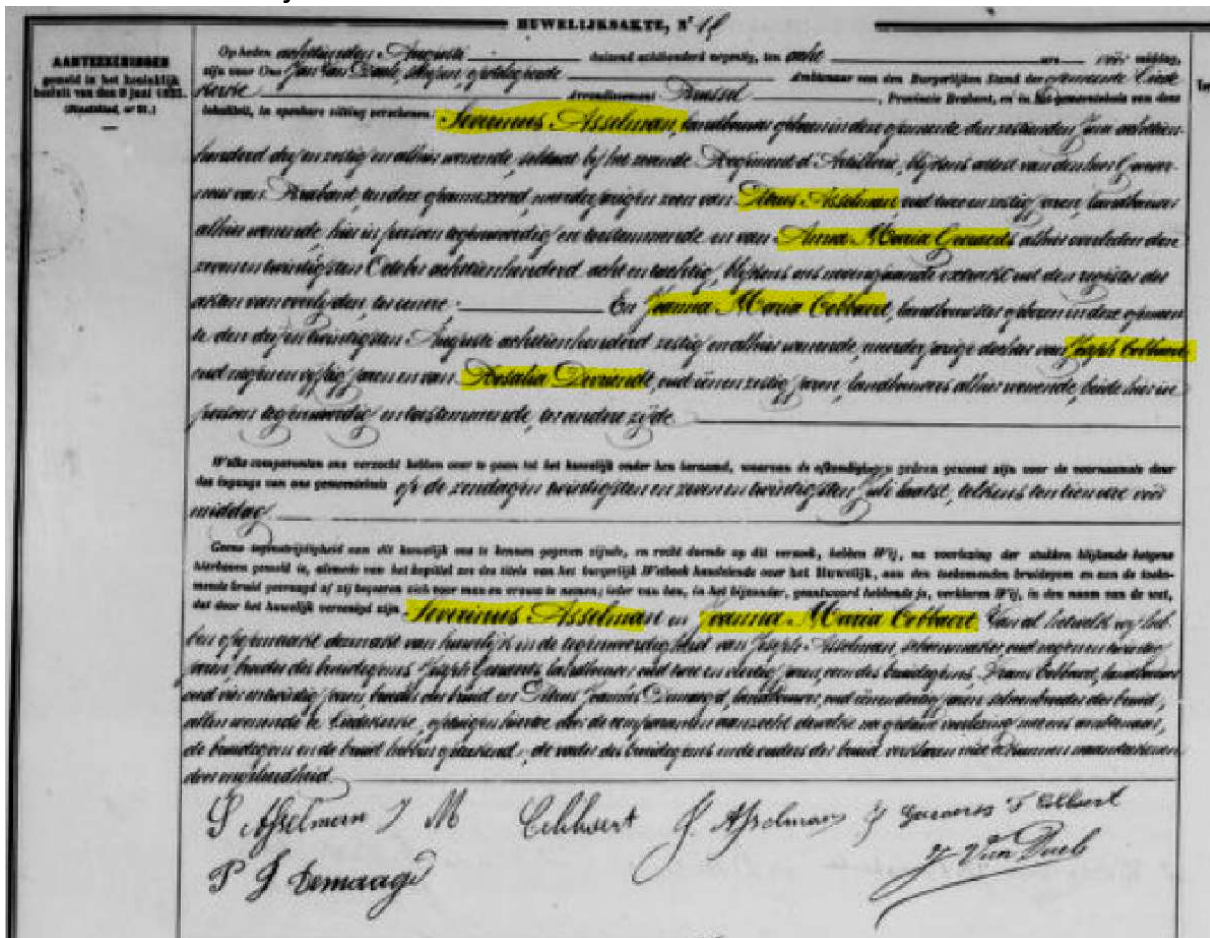 HUWELIJKSAKTE, N° 18
AANTEEKENINGEN
gemeld in het koninklijk
besluit van den 8 juni 1823.
(Staatsblad, nr 21.)
Op heden achttienden Augusti duizend achthonderd negentig, ten acht ure voor middag,
zijn voor Ons Jan Van Daele, schepen, Ambtenaar van den Burgerlijken Stand der gemeente Liede
kerke Arrondissement Brussel, Provincie Brabant, en in het gemeentehuis van deze
lokaliteit, in openbare zitting verschenen: Severinus Asselman, landbouwer geboren in deze gemeente den zestienden Juni achttien-
honderd dry en zestig en alhier wonende, soldaat by het zevende Regiment d'Artillerie, blijkens attest van den heer Gouver-
neur van Brabant, ten deze geannexeerd, meerderjarigen zoon van Petrus Asselman, oud twee en zestig jaren, landbouwer
alhier wonende, hier in persoon tegenwoordig en toestemmende en van Anna Maria Geeraerts alhier overleden den
zeven en twintigsten October achttienhonderd acht en tachtig, blijkens ons nevengaande extrakt uit den register der
akten van overlyden, ter eenre; En Joanna Maria Cobbaert, landbouwster geboren in deze gemeen-
te den dry en twintigsten Augusti achttienhonderd zestig en alhier wonende, meerderjarige dochter van Joseph Cobbaert
oud negen en vyftig jaren en van Rosalia Devriendt, oud eenen zestig jaren, landbouwers alhier wonende, beide hier in
persoon tegenwoordig en toestemmende, ter andere zyde.
Welke comparanten ons verzocht hebben over te gaan tot het huwelijk onder hen beraamd, waarvan de afkondigingen gedaan geweest zijn voor de voornaamste deur
des ingangs van ons gemeentehuis op de zondagen twintigsten en zeven en twintigsten Juli laatst, telkens ten tien ure voor
middag.
Geene tegenstrijdigheid aan dit huwelijk ons te kennen gegeven zijnde, en recht doende op dit verzoek, hebben Wij, na voorlezing der stukken blijkende hetgene
hierboven gemeld is, alsmede van het kapittel zes des titels van het burgerlijk Wetboek handelende over het Huwelijk, aan den toekomenden bruidegom en aan de toeko-
mende bruid gevraagd of zij begeeren zich voor man en vrouw te nemen; ieder van hen, in het bijzonder, geantwoord hebbende ja, verklaren Wij, in den naam van de wet,
dat door het huwelijk vereenigd zijn Severinus Asselman en Joanna Maria Cobbaert Van al hetwelk wy heb-
ben opgemaakt de akt van huwelijk in de tegenwoordigheid van Joseph Asselman, schoenmaker, oud negen en twintig
jaren, broeder des bruidegoms, Joseph Geeraerts, landbouwer oud twee en dertig jaren, van des bruidegoms, Frans Cobbaert, landbouwer
oud vier en twintig jaren, broeder der bruid en Petrus Joannes Demaegd, landbouwer, oud eenen dertig jaren, schoonbroeder der bruid,
allen wonende te Liedekerke,
de bruidegom en de bruid hebben geteekend, de vader des bruidegoms en de ouders der bruid verklaren niet te kunnen naamteekenen
door ongeleerdheid.
S Asselman J M Cobbaert J Asselman J Geeraerts F Cobbaert
P J Demaagd J Van Daele